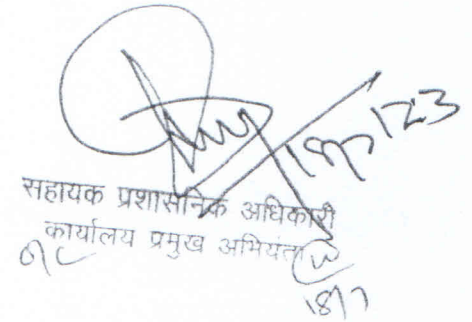 सहायक प्रशासनिक अधिकारी
कार्यालय प्रमुख अभियंता
18/7